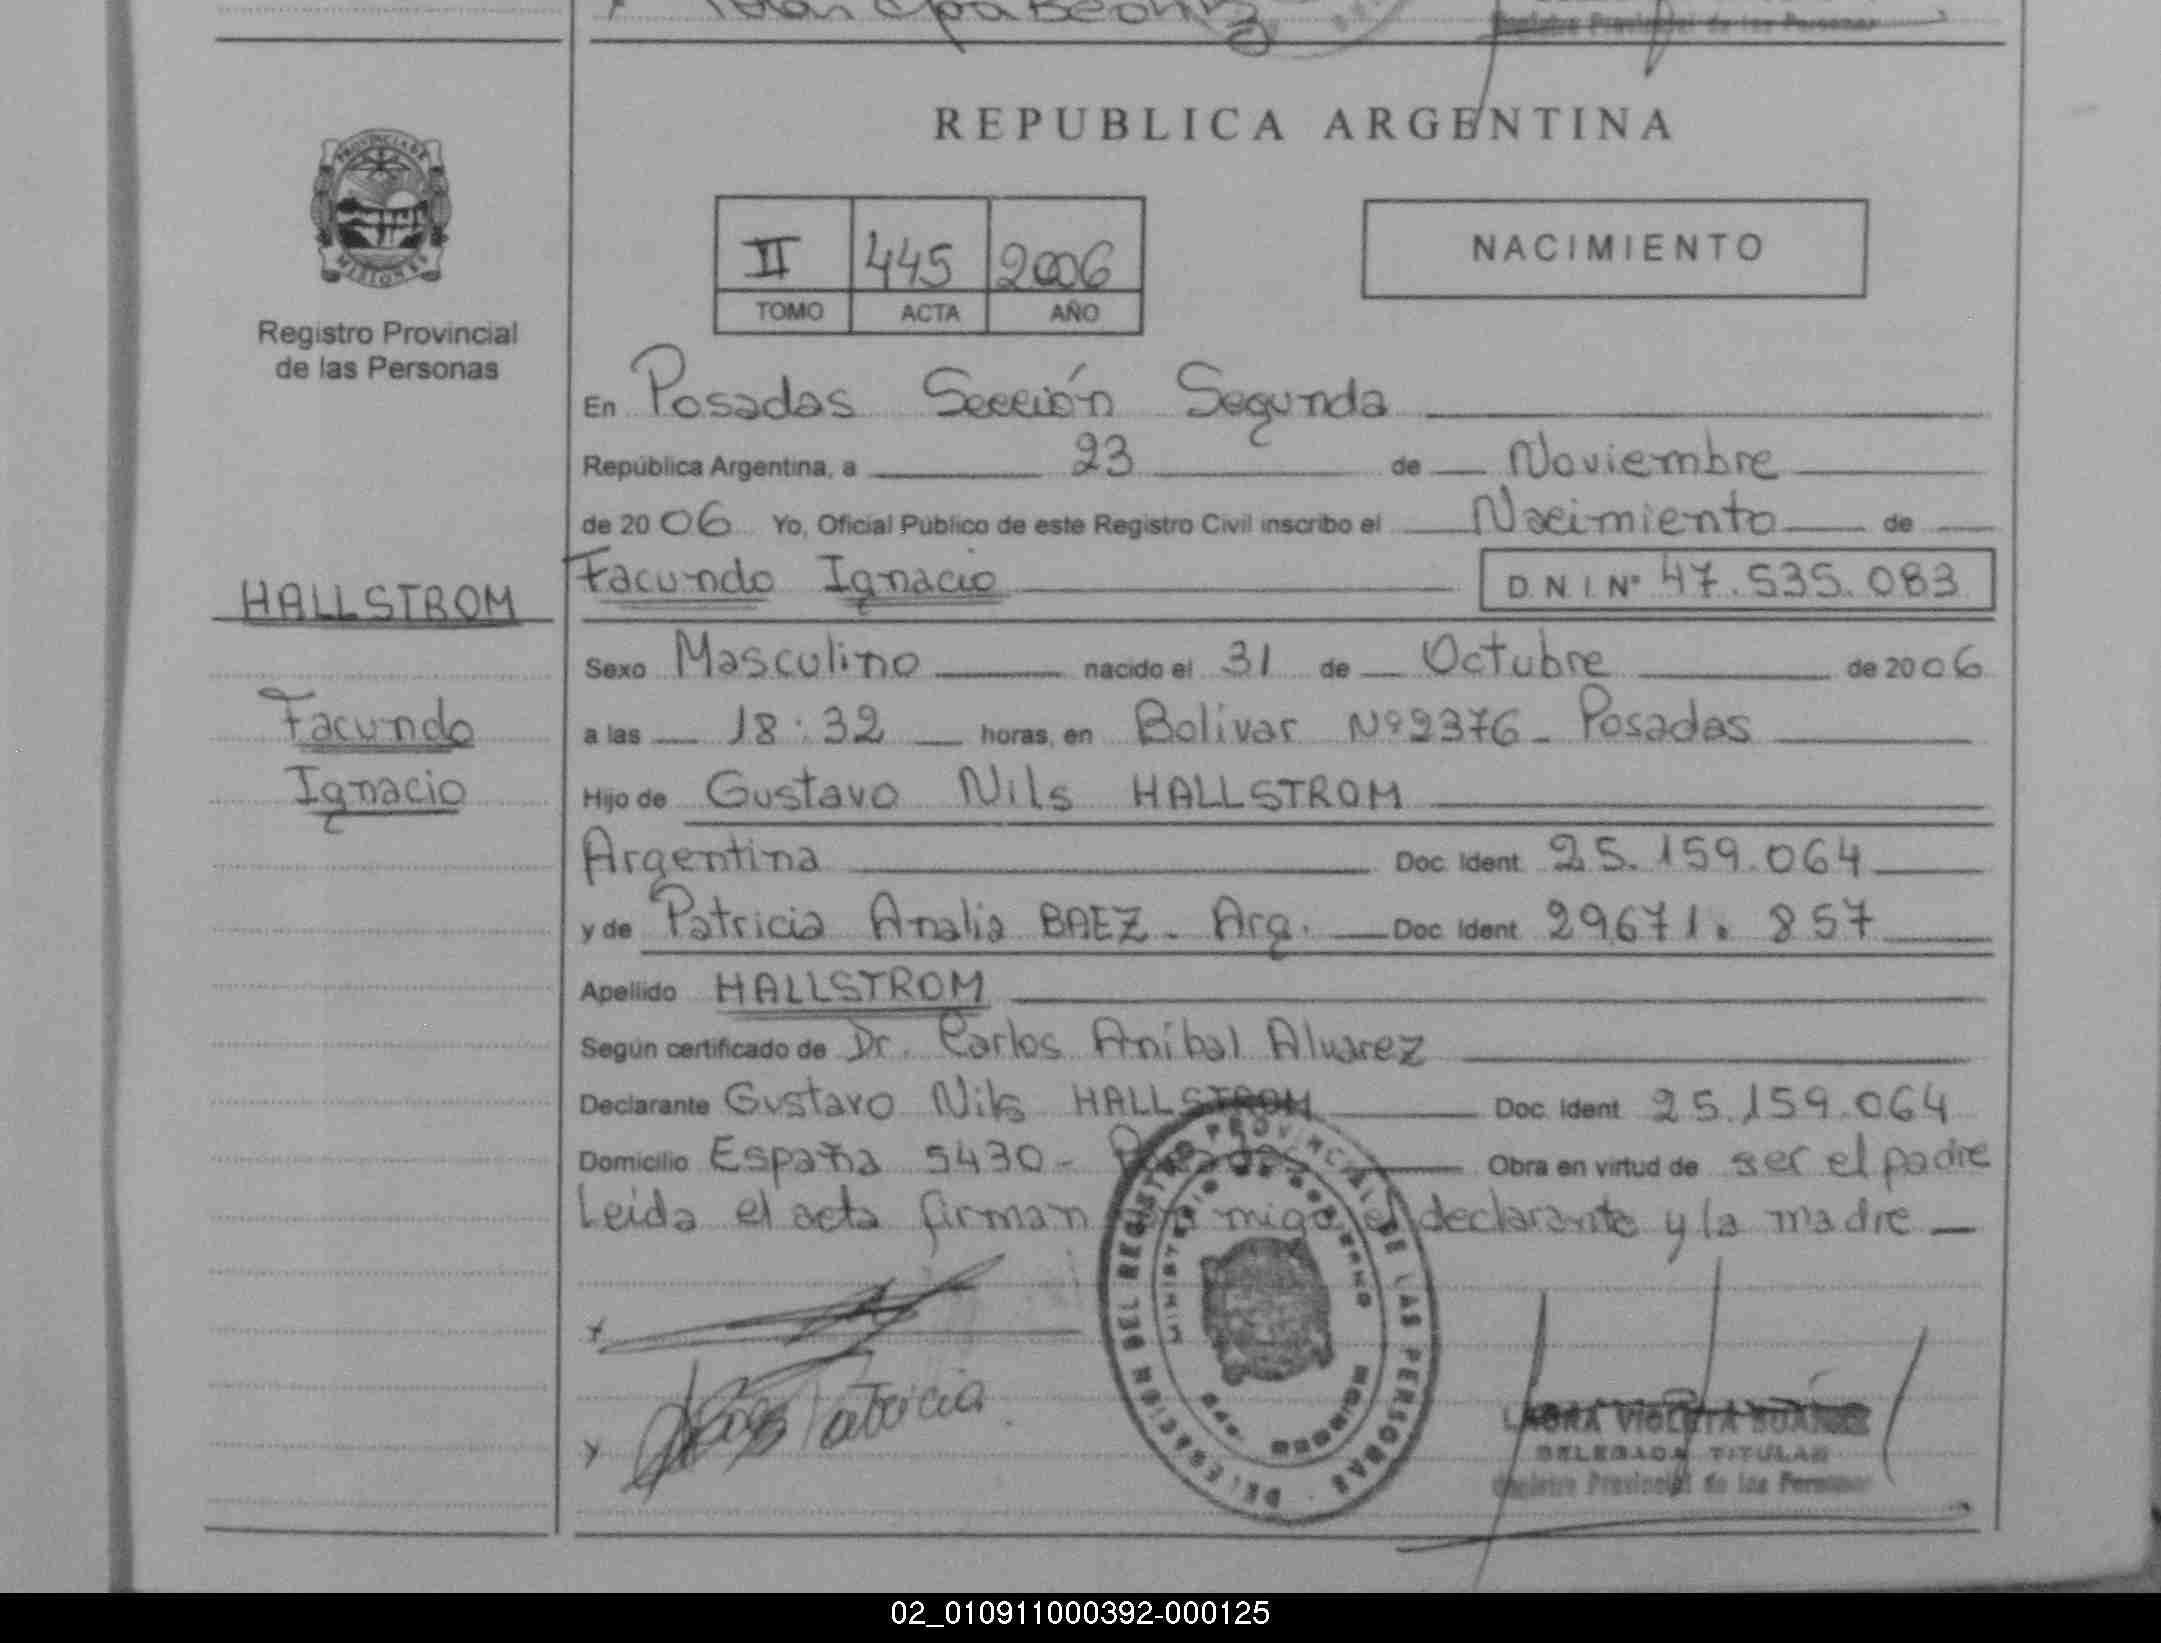 REPUBLICA ARGENTINA
PROVINCIA DE
MISIONES
Registro Provincial
de las Personas
II 445 2006
TOMO ACTA AÑO
NACIMIENTO
En Posadas Sección Segunda
República Argentina, a 23 de Noviembre
de 2006 Yo, Oficial Público de este Registro Civil inscribo el Nacimiento de
Facundo Ignacio D.N.I. Nº 47.535.083
HALLSTROM
Facundo
Ignacio
Sexo Masculino nacido el 31 de Octubre de 2006
a las 18:32 horas, en Bolivar Nº 2376 - Posadas
Hijo de Gustavo Nils HALLSTROM
Argentina Doc. Ident. 25.159.064
y de Patricia Analia BAEZ - Arg. Doc. Ident. 29671.857
Apellido HALLSTROM
Según certificado de Dr. Carlos Aníbal Alvarez
Declarante Gustavo Nils HALLSTROM Doc. Ident. 25.159.064
Domicilio España 5430 - Posadas Obra en virtud de ser el padre
Leida el acta firman migo el declarante y la madre
DELEGACION DEL REGISTRO PROVINCIAL DE LAS PERSONAS
MINISTERIO DE GOBIERNO
MISIONES
x
x Patricia
LAURA VIOLETA
DELEGADA TITULAR
Registro Provincial de las Personas
02_010911000392-000125